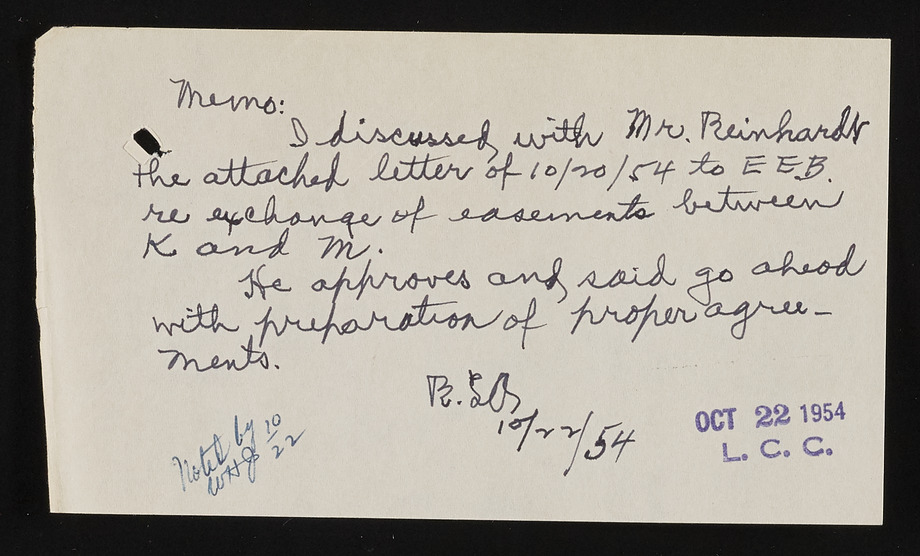 Memo:
I discussed with Mr. Reinhardt
the attached letter of 10/20/54 to E E.B.
re exchange of easements between
K and M.
He approves and said go ahead
with preparation of proper agree-
ments.
10/22/54
Noted by 10/22
WHJ
OCT 22 1954
L. C. C.